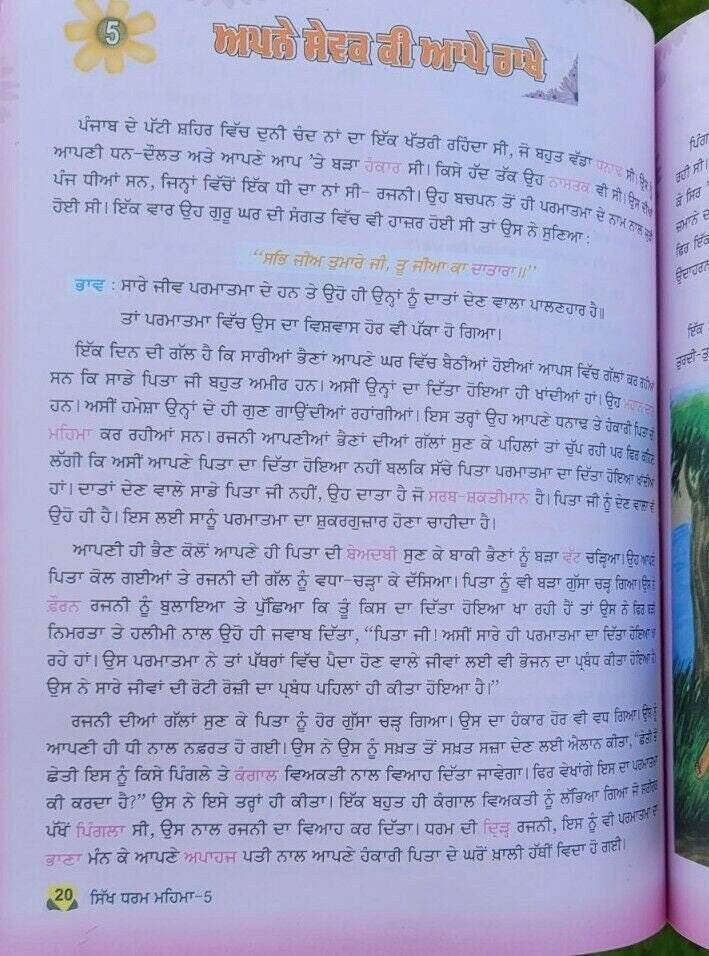 5
ਅਪਨੇ ਸੇਵਕ ਕੀ ਆਪੇ ਰਾਖੇ
ਪੰਜਾਬ ਦੇ ਪੱਟੀ ਸ਼ਹਿਰ ਵਿੱਚ ਦੁਨੀ ਚੰਦ ਨਾਂ ਦਾ ਇੱਕ ਖੱਤਰੀ ਰਹਿੰਦਾ ਸੀ, ਜੋ ਬਹੁਤ ਵੱਡਾ ਧਨਾਢ ਸੀ। ਉਸ ਨੂੰ
ਆਪਣੀ ਧਨ-ਦੌਲਤ ਅਤੇ ਆਪਣੇ ਆਪ ’ਤੇ ਬੜਾ ਹੰਕਾਰ ਸੀ। ਕਿਸੇ ਹੱਦ ਤੱਕ ਉਹ ਨਾਸਤਕ ਵੀ ਸੀ। ਉਸ ਦੀਆਂ
ਪੰਜ ਧੀਆਂ ਸਨ, ਜਿਨ੍ਹਾਂ ਵਿੱਚੋਂ ਇੱਕ ਧੀ ਦਾ ਨਾਂ ਸੀ- ਰਜਨੀ। ਉਹ ਬਚਪਨ ਤੋਂ ਹੀ ਪਰਮਾਤਮਾ ਦੇ ਨਾਮ ਨਾਲ ਜੁੜੀ
ਹੋਈ ਸੀ। ਇੱਕ ਵਾਰ ਉਹ ਗੁਰੂ ਘਰ ਦੀ ਸੰਗਤ ਵਿੱਚ ਵੀ ਹਾਜ਼ਰ ਹੋਈ ਸੀ ਤਾਂ ਉਸ ਨੇ ਸੁਣਿਆ :
“ਸਭਿ ਜੀਅ ਤੁਮਾਰੇ ਜੀ, ਤੂ ਜੀਆ ਕਾ ਦਾਤਾਰਾ॥”
ਭਾਵ : ਸਾਰੇ ਜੀਵ ਪਰਮਾਤਮਾ ਦੇ ਹਨ ਤੇ ਉਹੋ ਹੀ ਉਨ੍ਹਾਂ ਨੂੰ ਦਾਤਾਂ ਦੇਣ ਵਾਲਾ ਪਾਲਣਹਾਰ ਹੈ॥
ਤਾਂ ਪਰਮਾਤਮਾ ਵਿੱਚ ਉਸ ਦਾ ਵਿਸ਼ਵਾਸ ਹੋਰ ਵੀ ਪੱਕਾ ਹੋ ਗਿਆ।
ਇੱਕ ਦਿਨ ਦੀ ਗੱਲ ਹੈ ਕਿ ਸਾਰੀਆਂ ਭੈਣਾਂ ਆਪਣੇ ਘਰ ਵਿੱਚ ਬੈਠੀਆਂ ਹੋਈਆਂ ਆਪਸ ਵਿੱਚ ਗੱਲਾਂ ਕਰ ਰਹੀਆਂ
ਸਨ ਕਿ ਸਾਡੇ ਪਿਤਾ ਜੀ ਬਹੁਤ ਅਮੀਰ ਹਨ। ਅਸੀਂ ਉਨ੍ਹਾਂ ਦਾ ਦਿੱਤਾ ਹੋਇਆ ਹੀ ਖਾਂਦੀਆਂ ਹਾਂ। ਉਹ ਮਹਾਨ ਦਾਤੇ
ਹਨ। ਅਸੀਂ ਹਮੇਸ਼ਾ ਉਨ੍ਹਾਂ ਦੇ ਹੀ ਗੁਣ ਗਾਉਂਦੀਆਂ ਰਹਾਂਗੀਆਂ। ਇਸ ਤਰ੍ਹਾਂ ਉਹ ਆਪਣੇ ਧਨਾਢ ਤੇ ਹੰਕਾਰੀ ਪਿਤਾ ਦੀ
ਮਹਿਮਾ ਕਰ ਰਹੀਆਂ ਸਨ। ਰਜਨੀ ਆਪਣੀਆਂ ਭੈਣਾਂ ਦੀਆਂ ਗੱਲਾਂ ਸੁਣ ਕੇ ਪਹਿਲਾਂ ਤਾਂ ਚੁੱਪ ਰਹੀ ਪਰ ਫਿਰ ਕਹਿਣ
ਲੱਗੀ ਕਿ ਅਸੀਂ ਆਪਣੇ ਪਿਤਾ ਦਾ ਦਿੱਤਾ ਹੋਇਆ ਨਹੀਂ ਬਲਕਿ ਸੱਚੇ ਪਿਤਾ ਪਰਮਾਤਮਾ ਦਾ ਦਿੱਤਾ ਹੋਇਆ ਖਾਂਦੀਆਂ
ਹਾਂ। ਦਾਤਾਂ ਦੇਣ ਵਾਲੇ ਸਾਡੇ ਪਿਤਾ ਜੀ ਨਹੀਂ, ਉਹ ਦਾਤਾ ਹੈ ਜੋ ਸਰਬ-ਸ਼ਕਤੀਮਾਨ ਹੈ। ਪਿਤਾ ਜੀ ਨੂੰ ਦੇਣ ਵਾਲਾ ਵੀ
ਉਹੋ ਹੀ ਹੈ। ਇਸ ਲਈ ਸਾਨੂੰ ਪਰਮਾਤਮਾ ਦਾ ਸ਼ੁਕਰਗੁਜ਼ਾਰ ਹੋਣਾ ਚਾਹੀਦਾ ਹੈ।
ਆਪਣੀ ਹੀ ਭੈਣ ਕੋਲੋਂ ਆਪਣੇ ਹੀ ਪਿਤਾ ਦੀ ਬੇਅਦਬੀ ਸੁਣ ਕੇ ਬਾਕੀ ਭੈਣਾਂ ਨੂੰ ਬੜਾ ਵੱਟ ਚੜ੍ਹਿਆ। ਉਹ ਆਪਣੇ
ਪਿਤਾ ਕੋਲ ਗਈਆਂ ਤੇ ਰਜਨੀ ਦੀ ਗੱਲ ਨੂੰ ਵਧਾ-ਚੜ੍ਹਾ ਕੇ ਦੱਸਿਆ। ਪਿਤਾ ਨੂੰ ਵੀ ਬੜਾ ਗੁੱਸਾ ਚੜ੍ਹ ਗਿਆ। ਉਸ ਨੇ
ਫ਼ੌਰਨ ਰਜਨੀ ਨੂੰ ਬੁਲਾਇਆ ਤੇ ਪੁੱਛਿਆ ਕਿ ਤੂੰ ਕਿਸ ਦਾ ਦਿੱਤਾ ਹੋਇਆ ਖਾ ਰਹੀ ਹੈਂ ਤਾਂ ਉਸ ਨੇ ਫਿਰ ਬੜੀ
ਨਿਮਰਤਾ ਤੇ ਹਲੀਮੀ ਨਾਲ ਉਹੋ ਹੀ ਜਵਾਬ ਦਿੱਤਾ, “ਪਿਤਾ ਜੀ! ਅਸੀਂ ਸਾਰੇ ਹੀ ਪਰਮਾਤਮਾ ਦਾ ਦਿੱਤਾ ਹੋਇਆ ਖਾ
ਰਹੇ ਹਾਂ। ਉਸ ਪਰਮਾਤਮਾ ਨੇ ਤਾਂ ਪੱਥਰਾਂ ਵਿੱਚ ਪੈਦਾ ਹੋਣ ਵਾਲੇ ਜੀਵਾਂ ਲਈ ਵੀ ਭੋਜਨ ਦਾ ਪ੍ਰਬੰਧ ਕੀਤਾ ਹੋਇਆ ਹੈ।
ਉਸ ਨੇ ਸਾਰੇ ਜੀਵਾਂ ਦੀ ਰੋਟੀ ਰੋਜ਼ੀ ਦਾ ਪ੍ਰਬੰਧ ਪਹਿਲਾਂ ਹੀ ਕੀਤਾ ਹੋਇਆ ਹੈ।”
ਰਜਨੀ ਦੀਆਂ ਗੱਲਾਂ ਸੁਣ ਕੇ ਪਿਤਾ ਨੂੰ ਹੋਰ ਗੁੱਸਾ ਚੜ੍ਹ ਗਿਆ। ਉਸ ਦਾ ਹੰਕਾਰ ਹੋਰ ਵੀ ਵਧ ਗਿਆ। ਉਸ ਨੂੰ
ਆਪਣੀ ਹੀ ਧੀ ਨਾਲ ਨਫ਼ਰਤ ਹੋ ਗਈ। ਉਸ ਨੇ ਉਸ ਨੂੰ ਸਖ਼ਤ ਤੋਂ ਸਖ਼ਤ ਸਜ਼ਾ ਦੇਣ ਲਈ ਐਲਾਨ ਕੀਤਾ, “ਛੇਤੀ ਤੋਂ
ਛੇਤੀ ਇਸ ਨੂੰ ਕਿਸੇ ਪਿੰਗਲੇ ਤੇ ਕੰਗਾਲ ਵਿਅਕਤੀ ਨਾਲ ਵਿਆਹ ਦਿੱਤਾ ਜਾਵੇਗਾ। ਫਿਰ ਵੇਖਾਂਗੇ ਇਸ ਦਾ ਪਰਮਾਤਮਾ
ਕੀ ਕਰਦਾ ਹੈ?” ਉਸ ਨੇ ਇਸੇ ਤਰ੍ਹਾਂ ਹੀ ਕੀਤਾ। ਇੱਕ ਬਹੁਤ ਹੀ ਕੰਗਾਲ ਵਿਅਕਤੀ ਨੂੰ ਲੱਭਿਆ ਗਿਆ ਜੋ ਸਰੀਰਕ
ਪੱਖੋਂ ਪਿੰਗਲਾ ਸੀ, ਉਸ ਨਾਲ ਰਜਨੀ ਦਾ ਵਿਆਹ ਕਰ ਦਿੱਤਾ। ਧਰਮ ਦੀ ਦ੍ਰਿੜ੍ਹ ਰਜਨੀ, ਇਸ ਨੂੰ ਵੀ ਪਰਮਾਤਮਾ ਦਾ
ਭਾਣਾ ਮੰਨ ਕੇ ਆਪਣੇ ਅਪਾਹਜ ਪਤੀ ਨਾਲ ਆਪਣੇ ਹੰਕਾਰੀ ਪਿਤਾ ਦੇ ਘਰੋਂ ਖ਼ਾਲੀ ਹੱਥੀਂ ਵਿਦਾ ਹੋ ਗਈ।
20 ਸਿੱਖ ਧਰਮ ਮਹਿਮਾ-5
ਰਹੀ ਸੀ।
ਕੇ ਸਿਰ
ਜ਼ਮਾਨੇ ਦ
ਫਿਰ ਇੱਕ
ਉਦਾਹਰਨ
ਇੱਕ
ਤੁਰਦੀ-ਤੁ